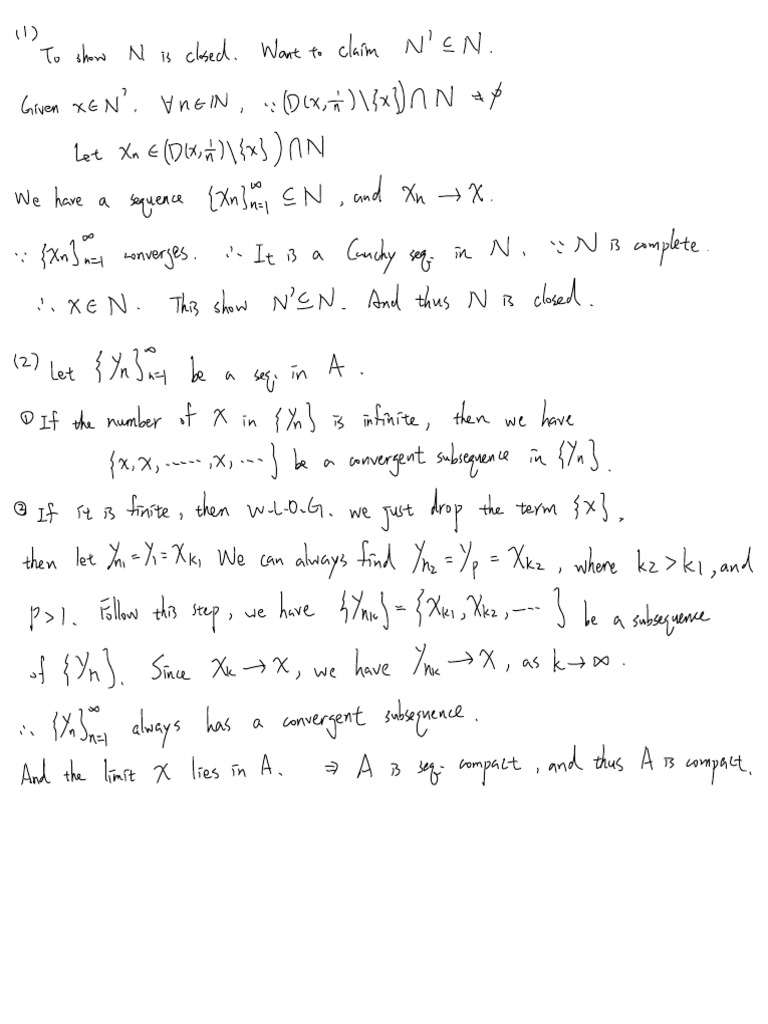 (1)
To show N is closed. Want to claim N' ⊆ N.
Given x∈N'. ∀n∈ℕ, ∵ (D(x,1/n)\{x})∩N ≠ ∅
Let xₙ ∈ (D(x,1/n)\{x})∩N
We have a sequence {xₙ}ₙ₌₁^∞ ⊆ N, and xₙ → x.
∵ {xₙ}ₙ₌₁^∞ converges. ∴ It is a Cauchy seq. in N. ∵ N is complete.
∴ x∈N. This show N'⊆N. And thus N is closed.
(2) Let {yₙ}ₙ₌₁^∞ be a seq. in A.
① If the number of x in {yₙ} is infinite, then we have
{x, x, ‑‑‑‑‑, x, ‑‑‑} be a convergent subsequence in {yₙ}.
② If it is finite, then W.L.O.G. we just drop the term {x},
then let y_{n₁} = y₁ = x_{k₁} We can always find y_{n₂} = y_p = x_{k₂}, where k₂ > k₁, and
p>1. Follow this step, we have {y_{nₖ}} = {x_{k₁}, x_{k₂}, ‑‑‑ } be a subsequence
of {yₙ}. Since xₖ → x, we have y_{nₖ} → x, as k → ∞.
∴ {yₙ}ₙ₌₁^∞ always has a convergent subsequence.
And the limit x lies in A. ⇒ A is seq. compact, and thus A is compact.